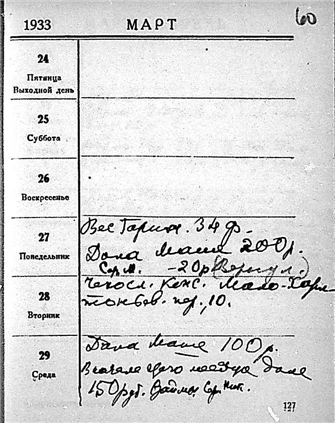 60
1933 МАРТ
24
Пятница
Выходной день
25
Суббота
26
Воскресенье
27
Понедельник
Вес Гарика. 34 ф.
Дала Маше 200 р.
Сер. М. - 20 р. (Вернул.)
28
Вторник
Чехосл. Конс. Мало-Харитоньев. пер., 10.
29
Среда
Дала Маше 100 р.
Вначале этого месяца дала
150 руб. Взаймы Сер. Ник.
127